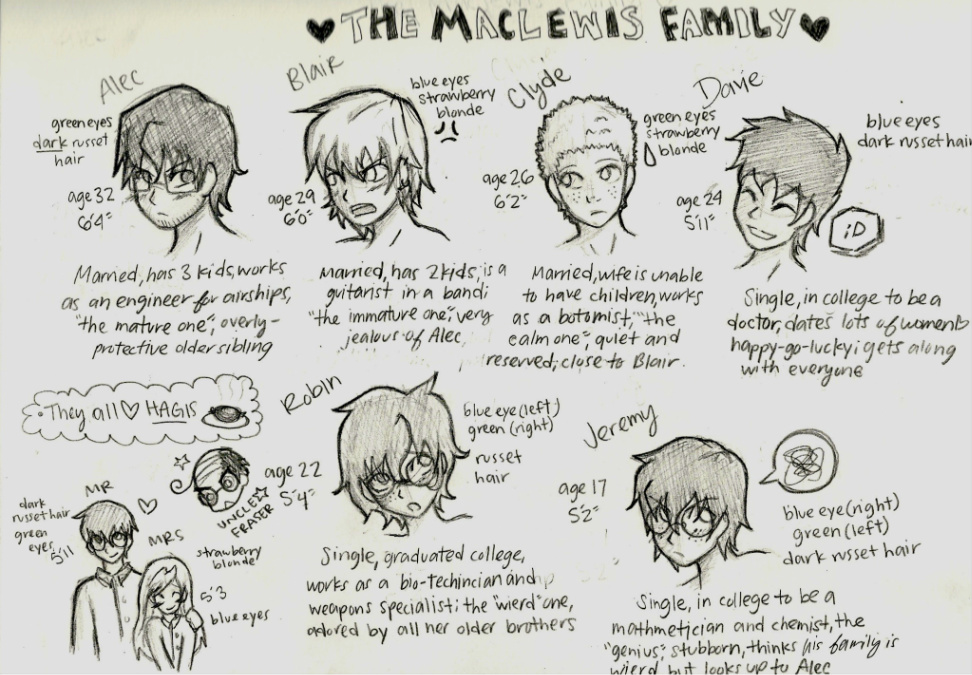 ♥ THE MACLEWIS FAMILY ♥
Alec
green eyes
dark russet
hair
age 32
6'4"
Married, has 3 kids, works
as an engineer for airships,
"the mature one"; overly-
protective older sibling
Blair
blue eyes
strawberry
blonde
age 29
6'0"
Married, has 2 kids, is a
guitarist in a band;
"the immature one"; very
jealous of Alec
Clyde
green eyes
strawberry
blonde
age 26
6'2"
Married, wife is unable
to have children, works
as a botomist, "the
calm one", quiet and
reserved; close to Blair.
Davie
blue eyes
dark russet hair
age 24
5'11"
;D
Single, in college to be a
doctor, dates lots of women♡
happy-go-lucky; gets along
with everyone
They all ♡ HAGIS
UNCLE
FRASER
MR
dark
russet hair
green
eyes
5'11
MRS
strawberry
blonde
5'3
blue eyes
Robin
blue eye (left)
green (right)
russet
hair
age 22
5'4"
Single, graduated college,
works as a bio-techincian and
weapons specialist; the "wierd" one,
adored by all her older brothers
Jeremy
age 17
5'2"
blue eye (right)
green (left)
dark russet hair
Single, in college to be a
mathmetjcian and chemist, the
"genius", stubborn, thinks his family is
wierd but looks up to Alec